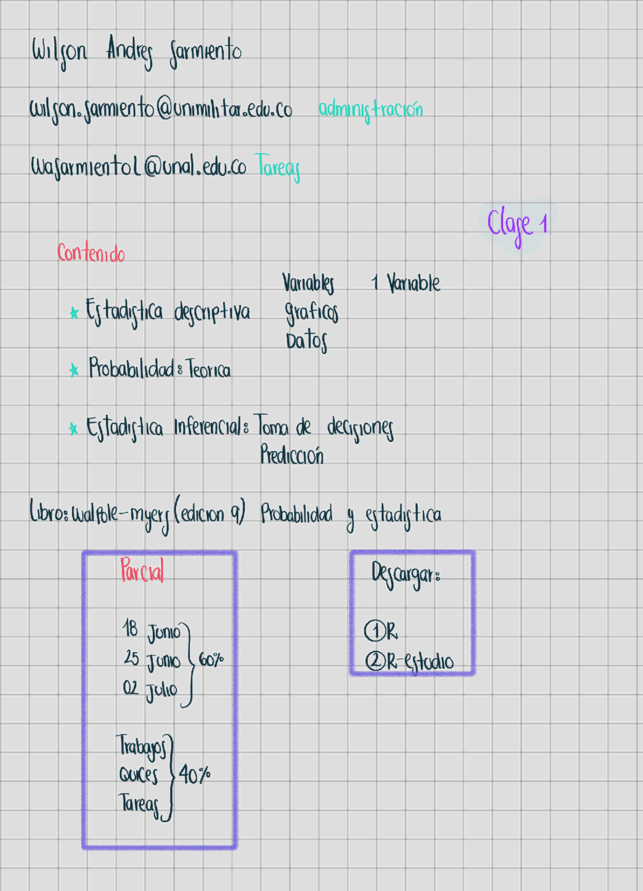 Wilson Andres Sarmiento
wilson.sarmiento@unimilitar.edu.co administración
wasarmientol@unal.edu.co Tareas
Clase 1
Contenido
Variables 1 Variable
* Estadistica descriptiva graficos
Datos
* Probabilidad: Teorica
* Estadistica Inferencial: Toma de decisiones
Predicción
Libro: Walpole-myers (edicion 9) Probabilidad y estadistica
Parcial
18 Junio
25 Junio 60%
02 Julio
Trabajos
Quices 40%
Tareas
Descargar:
① R
② R-estudio